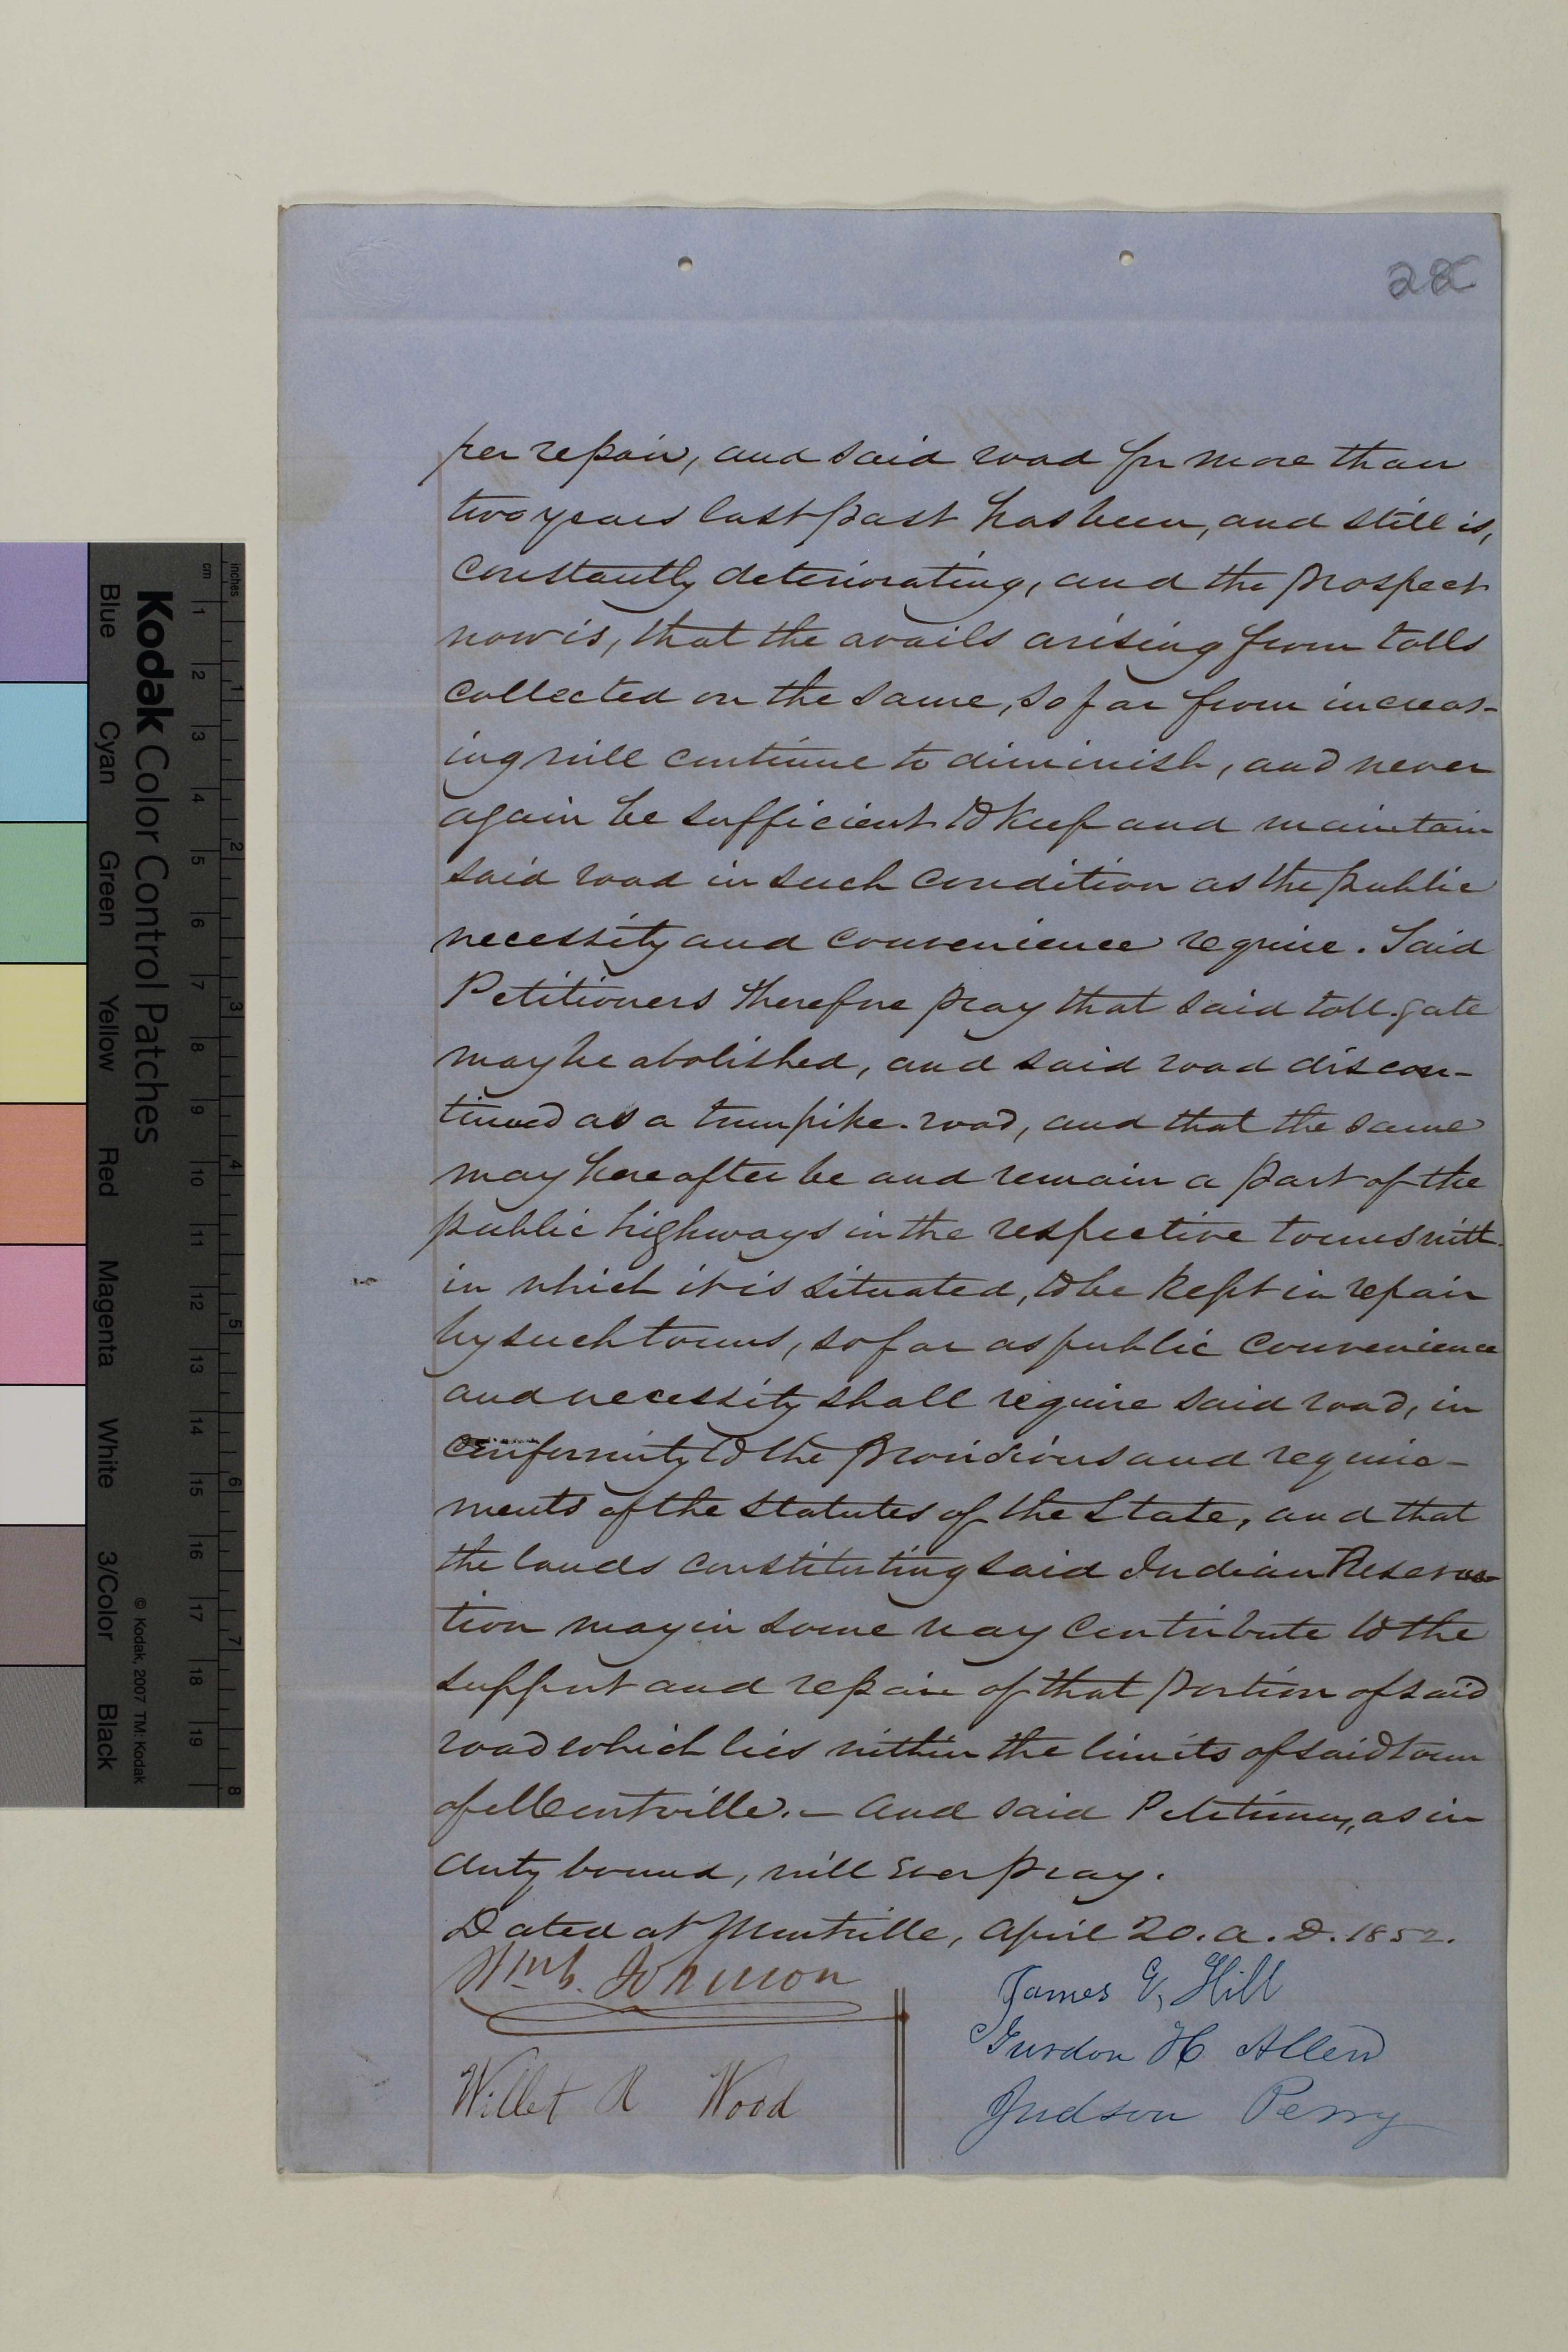 28
per repair, and said road for more than
two years last past has been, and still is,
constantly deteriorating, and the prospect
now is, that the avails arising from tolls
collected on the same, so far from increas-
ing will continue to diminish, and never
again be sufficient to keep and maintain
said road in such condition as the public
necessity and convenience require. Said
Petitioners therefore pray that said toll-gate
may be abolished, and said road discon-
tinued as a turnpike-road, and that the same
may hereafter be and remain a part of the
public highways in the respective towns with-
in which it is situated, to be kept in repair
by such towns, so far as public convenience
and necessity shall require said road, in
conformity to the provisions and require-
ments of the statutes of the State, and that
the lands constituting said Indian Reserva-
tion may in some way contribute to the
support and repair of that portion of said
road which lies within the limits of said town
of Montville. — And said Petitioners, as in
duty bound, will ever pray.
Dated at Montville, April 20. A. D. 1852.
Johnson
Willet R Wood
James Hill
Gurdon H Allen
Judson Perry
inches
cm
1 2 3 4 5 6 7 8 9 10 11 12 13 14 15 16 17 18 19
1 2 3 4 5 6 7 8
Kodak Color Control Patches
© Kodak, 2007 TM: Kodak
Blue Cyan Green Yellow Red Magenta White 3/Color Black